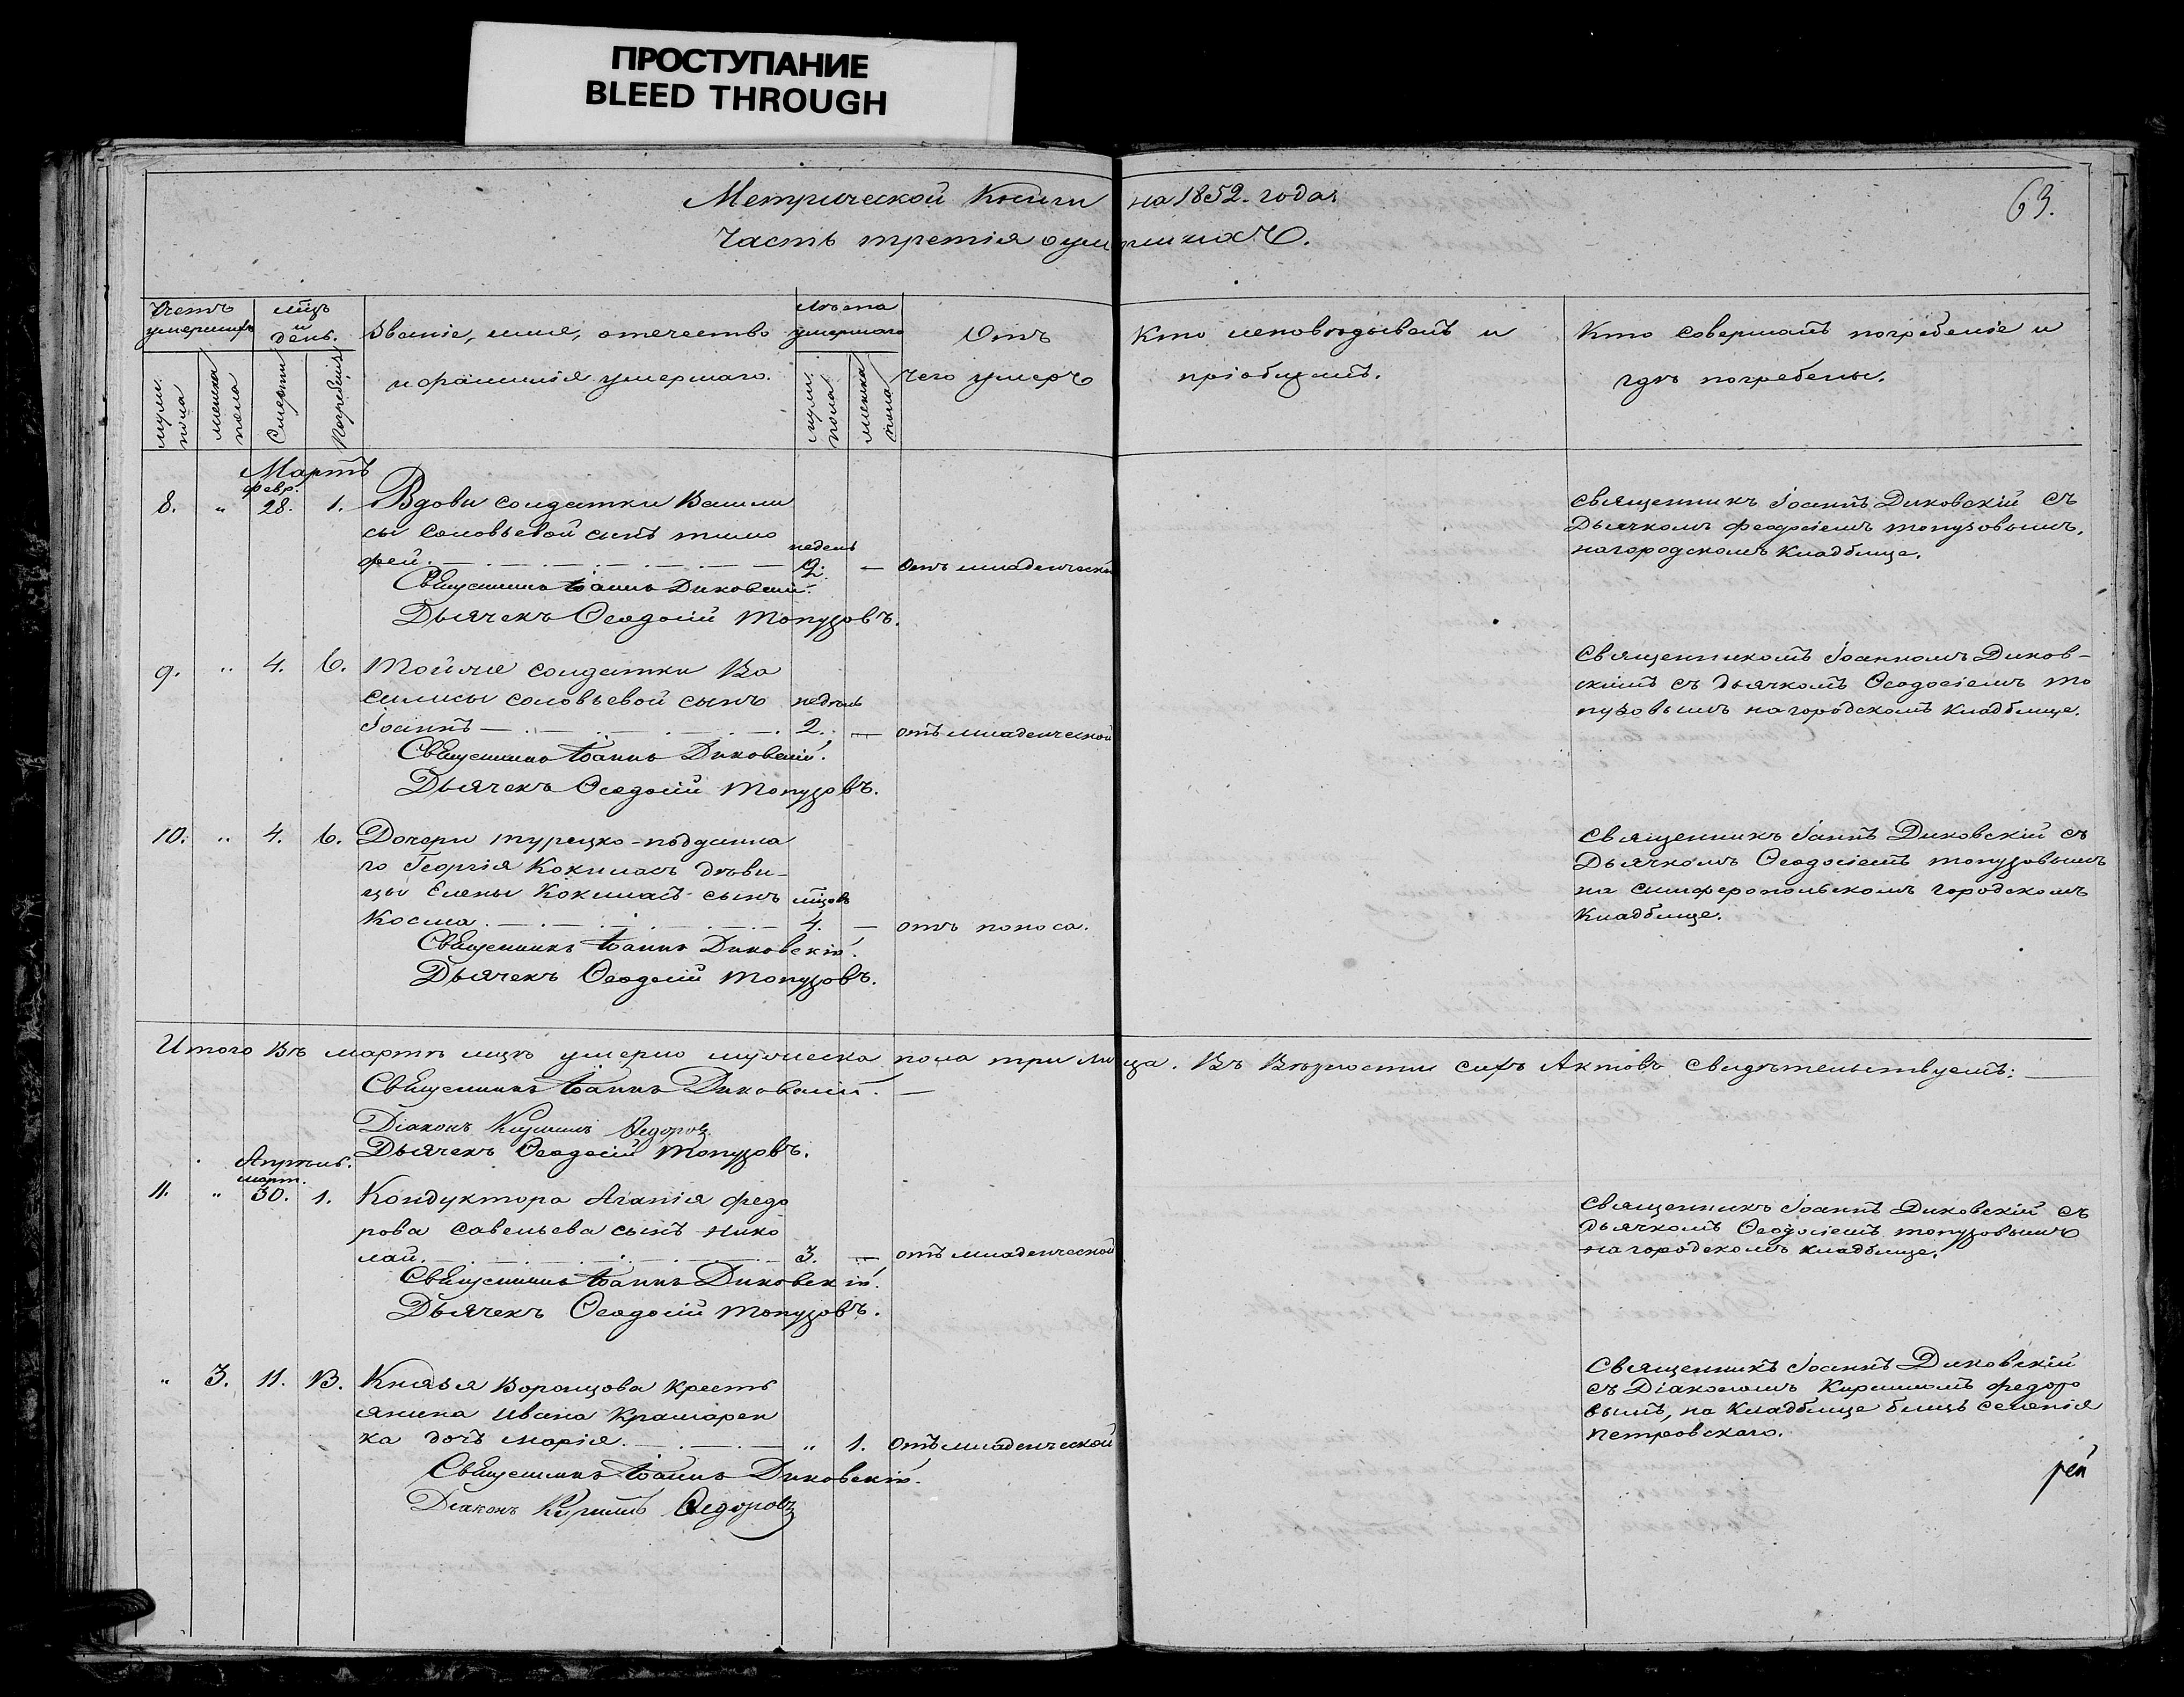 ПРОСТУПАНИЕ
BLEED THROUGH
Метрической Книги на 1852. года
63.
Часть третія о умершихъ.
Счетъ умершихъ
мцъ и день.
Званіе, имя, отечество и фамилія умершаго.
Лѣта умершаго
Отъ чего умеръ
Кто исповѣдывалъ и пріобщалъ.
Кто совершалъ погребеніе и гдѣ погребены.
муж. пола
женска пола
Смерти
Погребенія
муж. пола
женска пола
Мартъ
февр.
8. " 28. 1. Вдовы солдатки Васили
сы Соловьевой сынъ Тимо
фей. недель 2. — Отъ младенческой
Священникъ Іоаннъ Диковскій.
Дьячекъ Ѳеодосій Топузовъ.
Священникъ Іоаннъ Диковскій съ
Дьячкомъ Феодосіемъ Топузовымъ,
на городскомъ кладбище.
9. " 4. 6. Тойже солдатки Ва
силисы Соловьевой сынъ
Іоаннъ — недель 2. — отъ младенческой
Священникъ Іоаннъ Диковскій.
Дьячекъ Ѳеодосій Топузовъ.
Священникомъ Іоанномъ Диков-
скимъ съ дьячкомъ Ѳеодосіемъ То
пузовымъ на городскомъ кладбище.
10. " 4. 6. Дочери турецко-поддонна
го Георгія Кокинакъ дѣви-
цы Елены сынъ
Косма. мцовъ 4. — отъ поноса.
Священникъ Іоаннъ Диковскій.
Дьячекъ Ѳеодосій Топузовъ.
Священникъ Іаннъ Диковскій съ
Дьячкомъ Ѳеодосіемъ Топузовымъ
на симферопольскомъ городскомъ
Кладбище.
Итого Въ мартѣ мцѣ умерло мужеска пола три лица. Въ Вѣрности сихъ Актовъ свидѣтельствуемъ:
Священникъ Іоаннъ Диковскій. —
Діаконъ Кириллъ Ѳедоровъ
Дьячекъ Ѳеодосій Топузовъ.
Апрель.
март.
11. " 30. 1. Кондуктора Агапія Федо
рова Савельева сынъ Нико
лай. 3. — отъ младенческой
Священникъ Іоаннъ Диковскій.
Дьячекъ Ѳеодосій Топузовъ.
Священникъ Іоаннъ Диковскій съ
дьячкомъ Ѳеодосіемъ Топузовымъ
на городскомъ кладбище.
" 3. 11. 13. Князя Воронцова кресть
янина Ивана Крамарен
ка дочь Марія. " 1. Отъ младенческой
Священникъ Іоаннъ Диковскій.
Діаконъ Кириллъ Ѳедоровъ
Священникъ Іоаннъ Диковскій
съ Діакономъ Кирилломъ Федоро
вымъ, на Кладбище близъ селенія
Петровскаго.